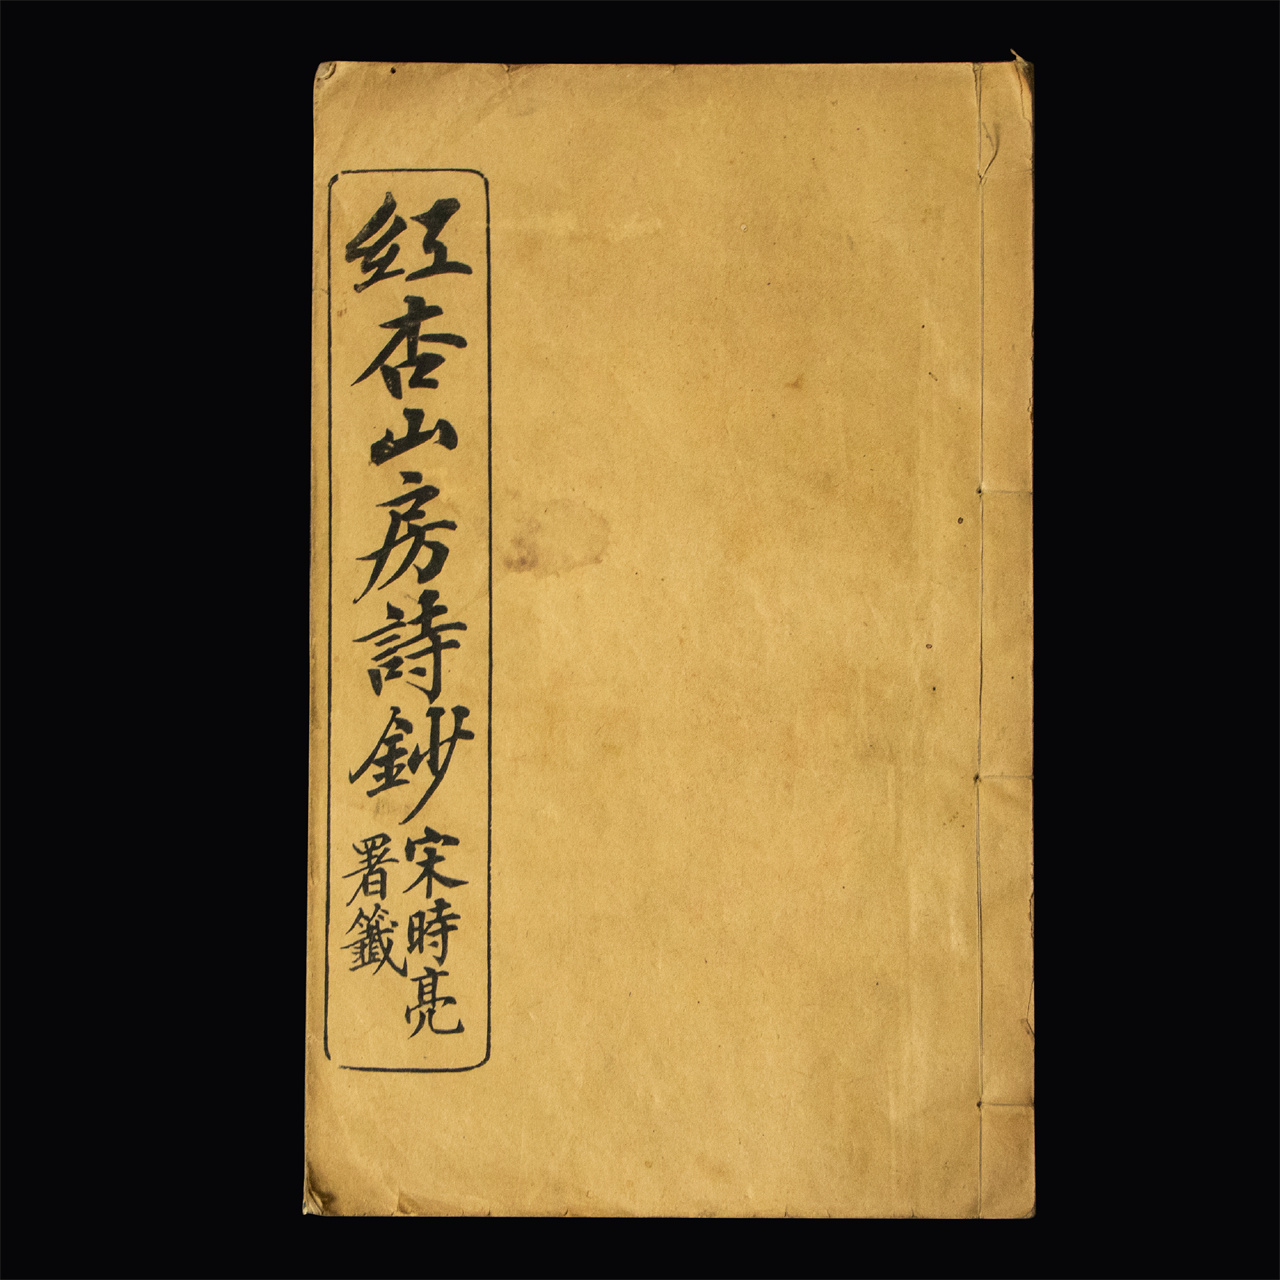 紅杏山房詩鈔
宋時亮
署籤